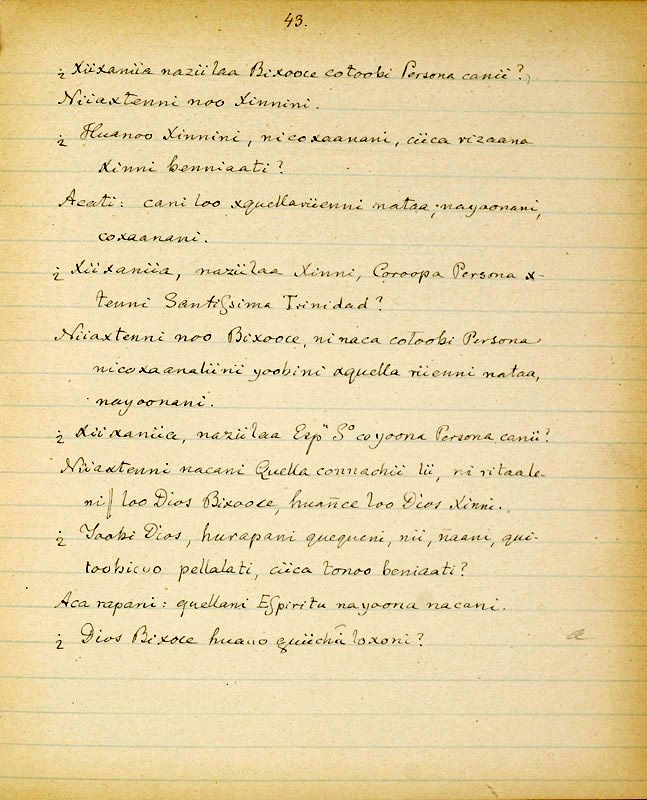 43.
¿ Xiixaniia naziilaa Bixooce cotoobi Persona canii?
Niiaxtenni noo Xinnini.
¿ Huanoo Xinnini, nicoxaanani, ciica rizaana
Xinni benniaati?
Acati: cani loo xquellariienni nataa, nayoonani,
coxaanani.
¿ Xiixaniia, naziilaa Xinni, Coroopa Persona x-
tenni Santiſsima Trinidad?
Niiaxtenni noo Bixooce, ni naca cotoobi Persona
nicoxaanaliini yoobini xquella riienni nataa,
nayoonani.
¿ Xiixaniia, naziilaa Espu Sº coyoona Persona canii?
Niiaxtenni nacani Quella connachii lii, ni ritaale-
ni loo Dios Bixooce, huañce loo Dios Xinni.
¿ Yoobi Dios, hurapani quequeni, nii, ñaani, qui-
toobicuo pellalati, ciica tonoo beniaati?
Aca rapani: quellani Eſpiritu nayoona nacani.
¿ Dios Bixoce huayo quiichã loxoni?
a